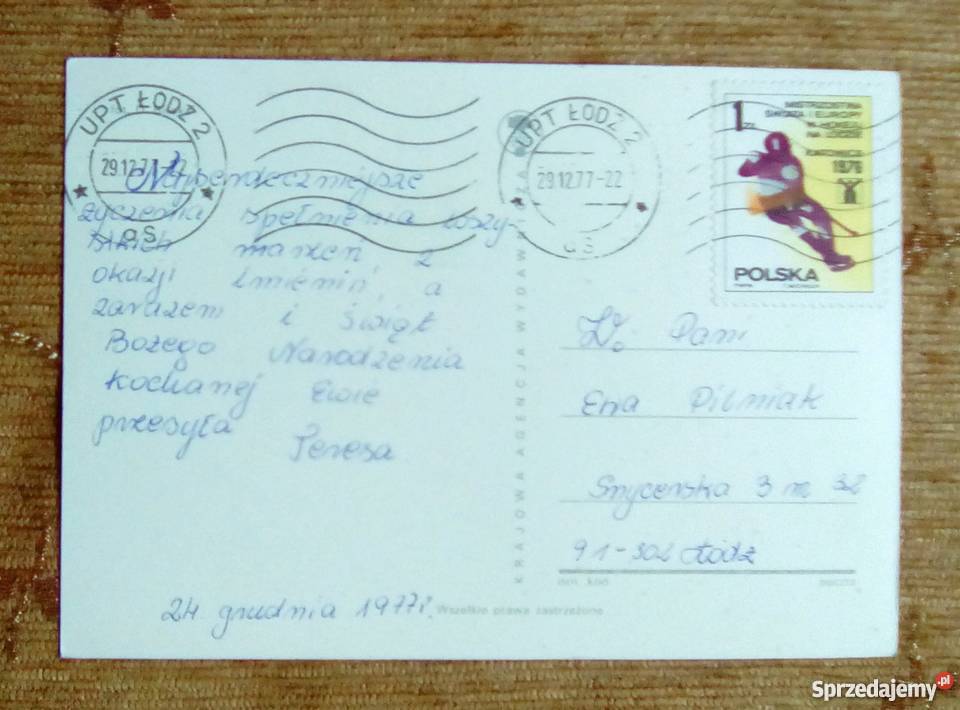 UPT ŁÓDŹ 2
29.12.77
UPT ŁÓDŹ 2
29.12.77-22
1 ZŁ
MISTRZOSTWA
ŚWIATA I EUROPY
W HOKEJU
NA LODZIE
KATOWICE
1976
POLSKA
Najserdeczniejsze
życzenia spełnienia wszy-
stkich marzeń z
okazji Imienin, a
zarazem i Świąt
Bożego Narodzenia
kochanej Ewie
przesyła
Teresa
24 grudnia 1977r.
KRAJOWA AGENCJA WYDAWNICZA
W. Pani
Ewa Pilniak
Snycerska 3 m 32
91-302 Łódź
poczta
Wszelkie prawa zastrzeżone
Sprzedajemy.pl